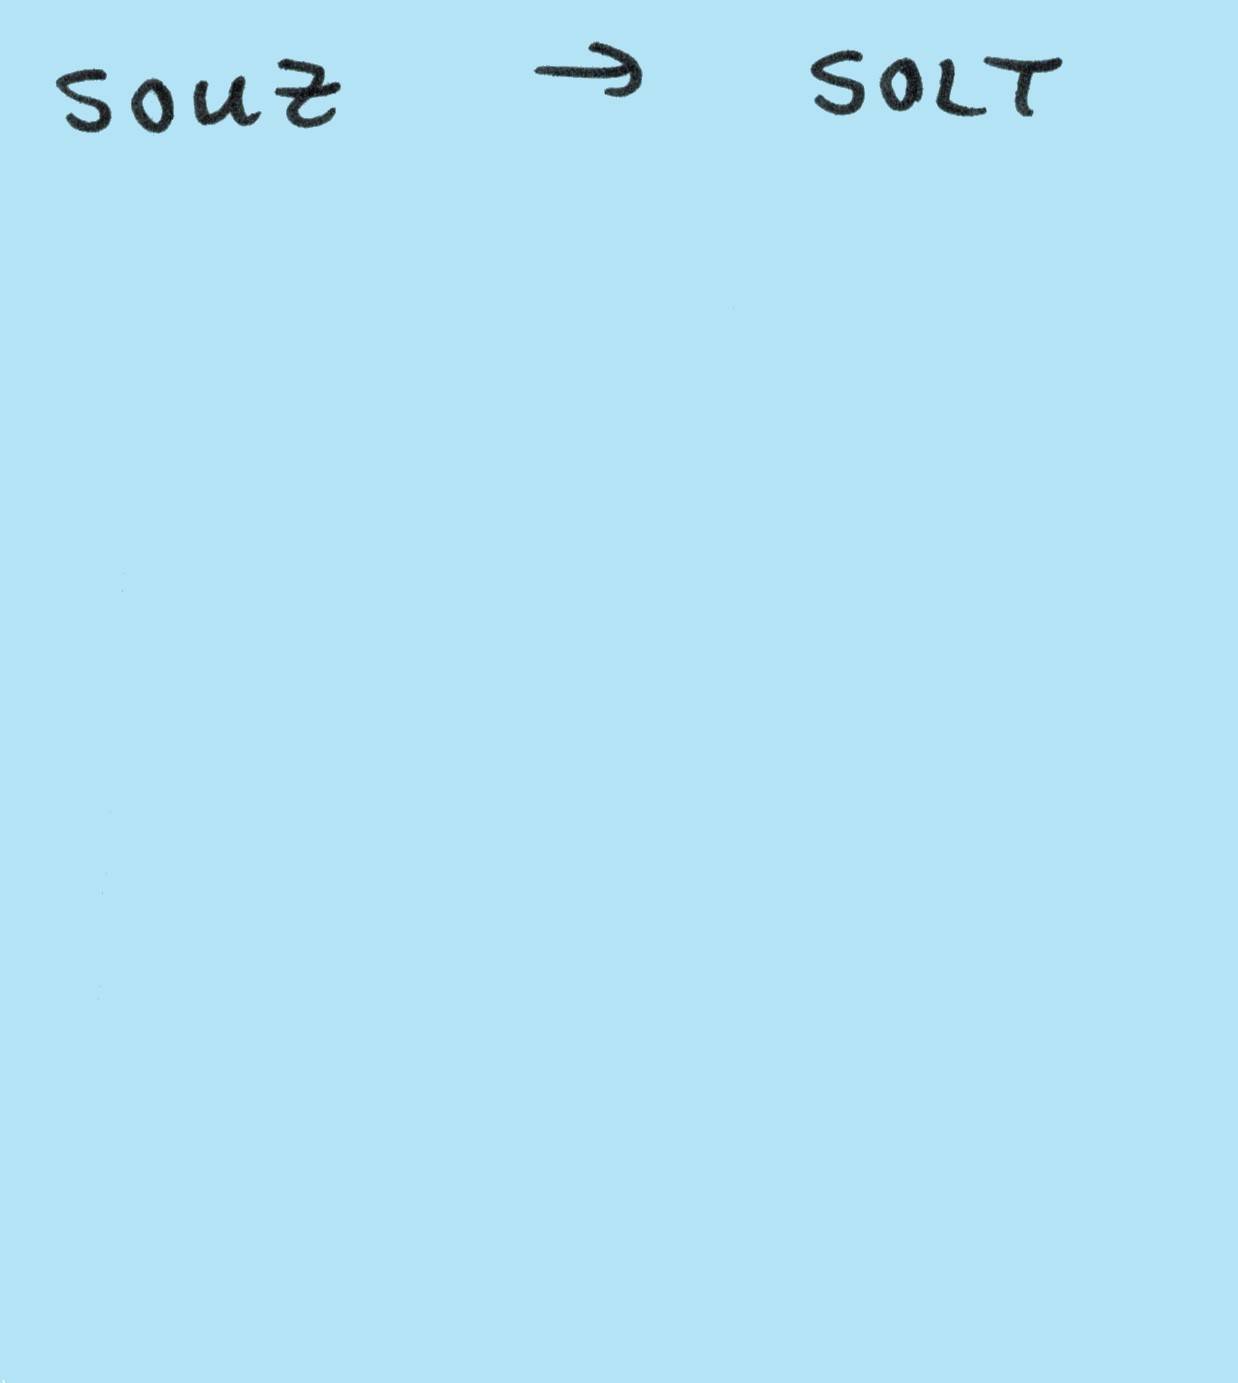 SOUZ → SOLT